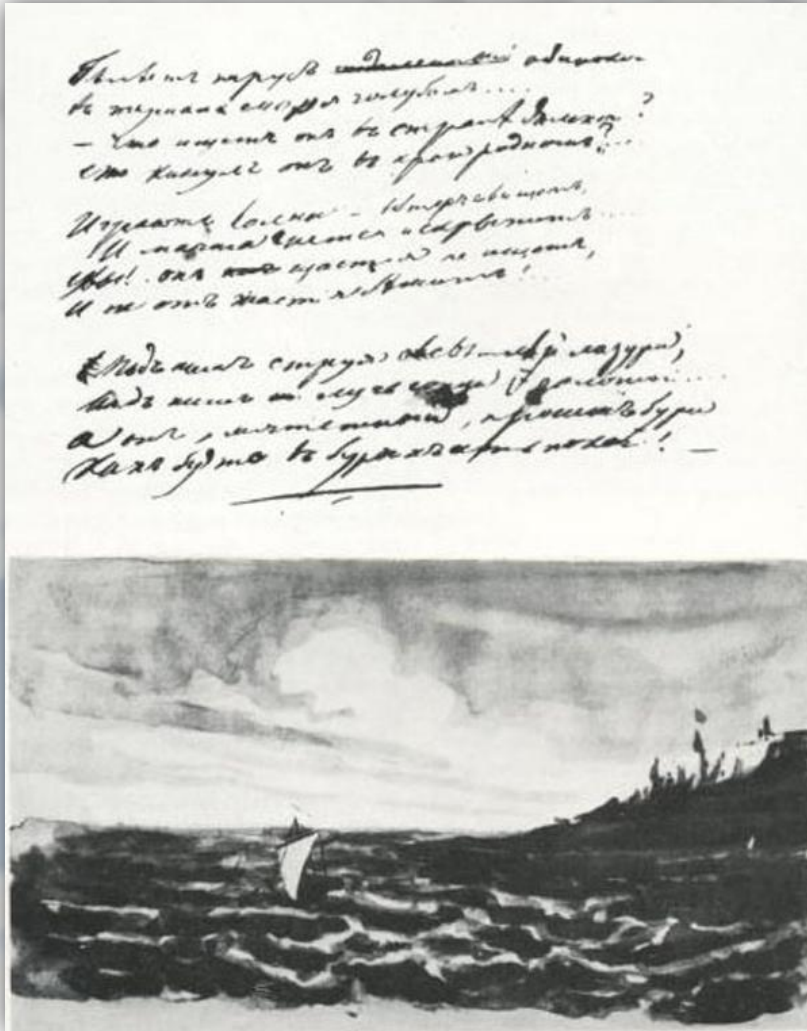 Бѣлѣетъ парусъ одинокой
Въ туманѣ моря голубомъ....
– Что ищетъ онъ въ странѣ далекой?
Что кинулъ онъ въ краю родномъ?...
Играютъ волны – вѣтеръ свищетъ,
И мачта гнется и скрыпитъ....
Увы! онъ щастія не ищетъ,
И не отъ щастія бѣжитъ!
Подъ нимъ струя свѣтлѣй лазури,
Надъ нимъ лучь солнца золотой....
А онъ, мятежный, проситъ бури,
Какъ будто въ буряхъ есть покой! –